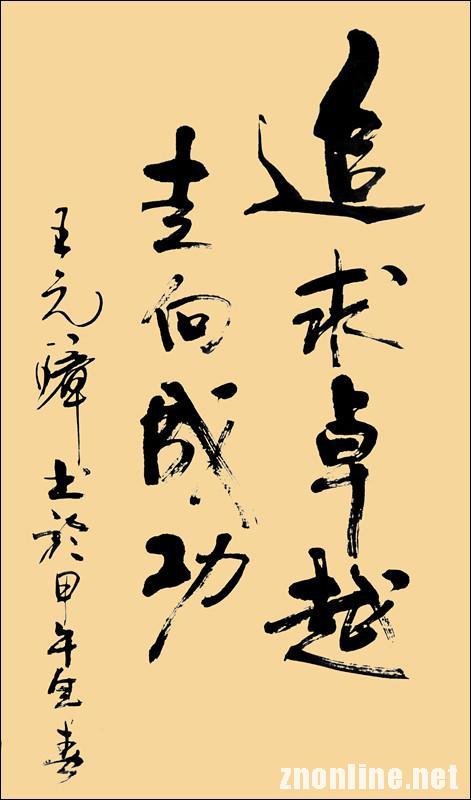 追求卓越
走向成功
王元书於甲午春
znonline.net